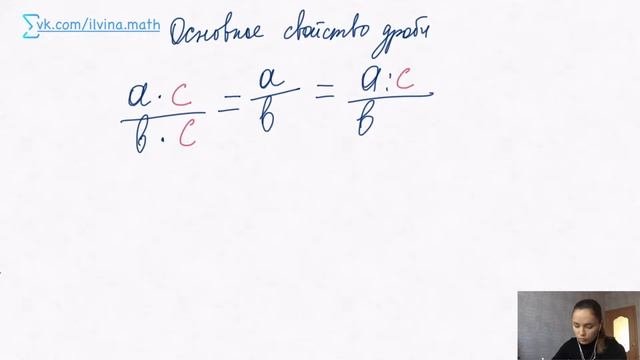 vk.com/ilvina.math
Основное свойство дроби
a · c / b · c = a / b = a : c / b